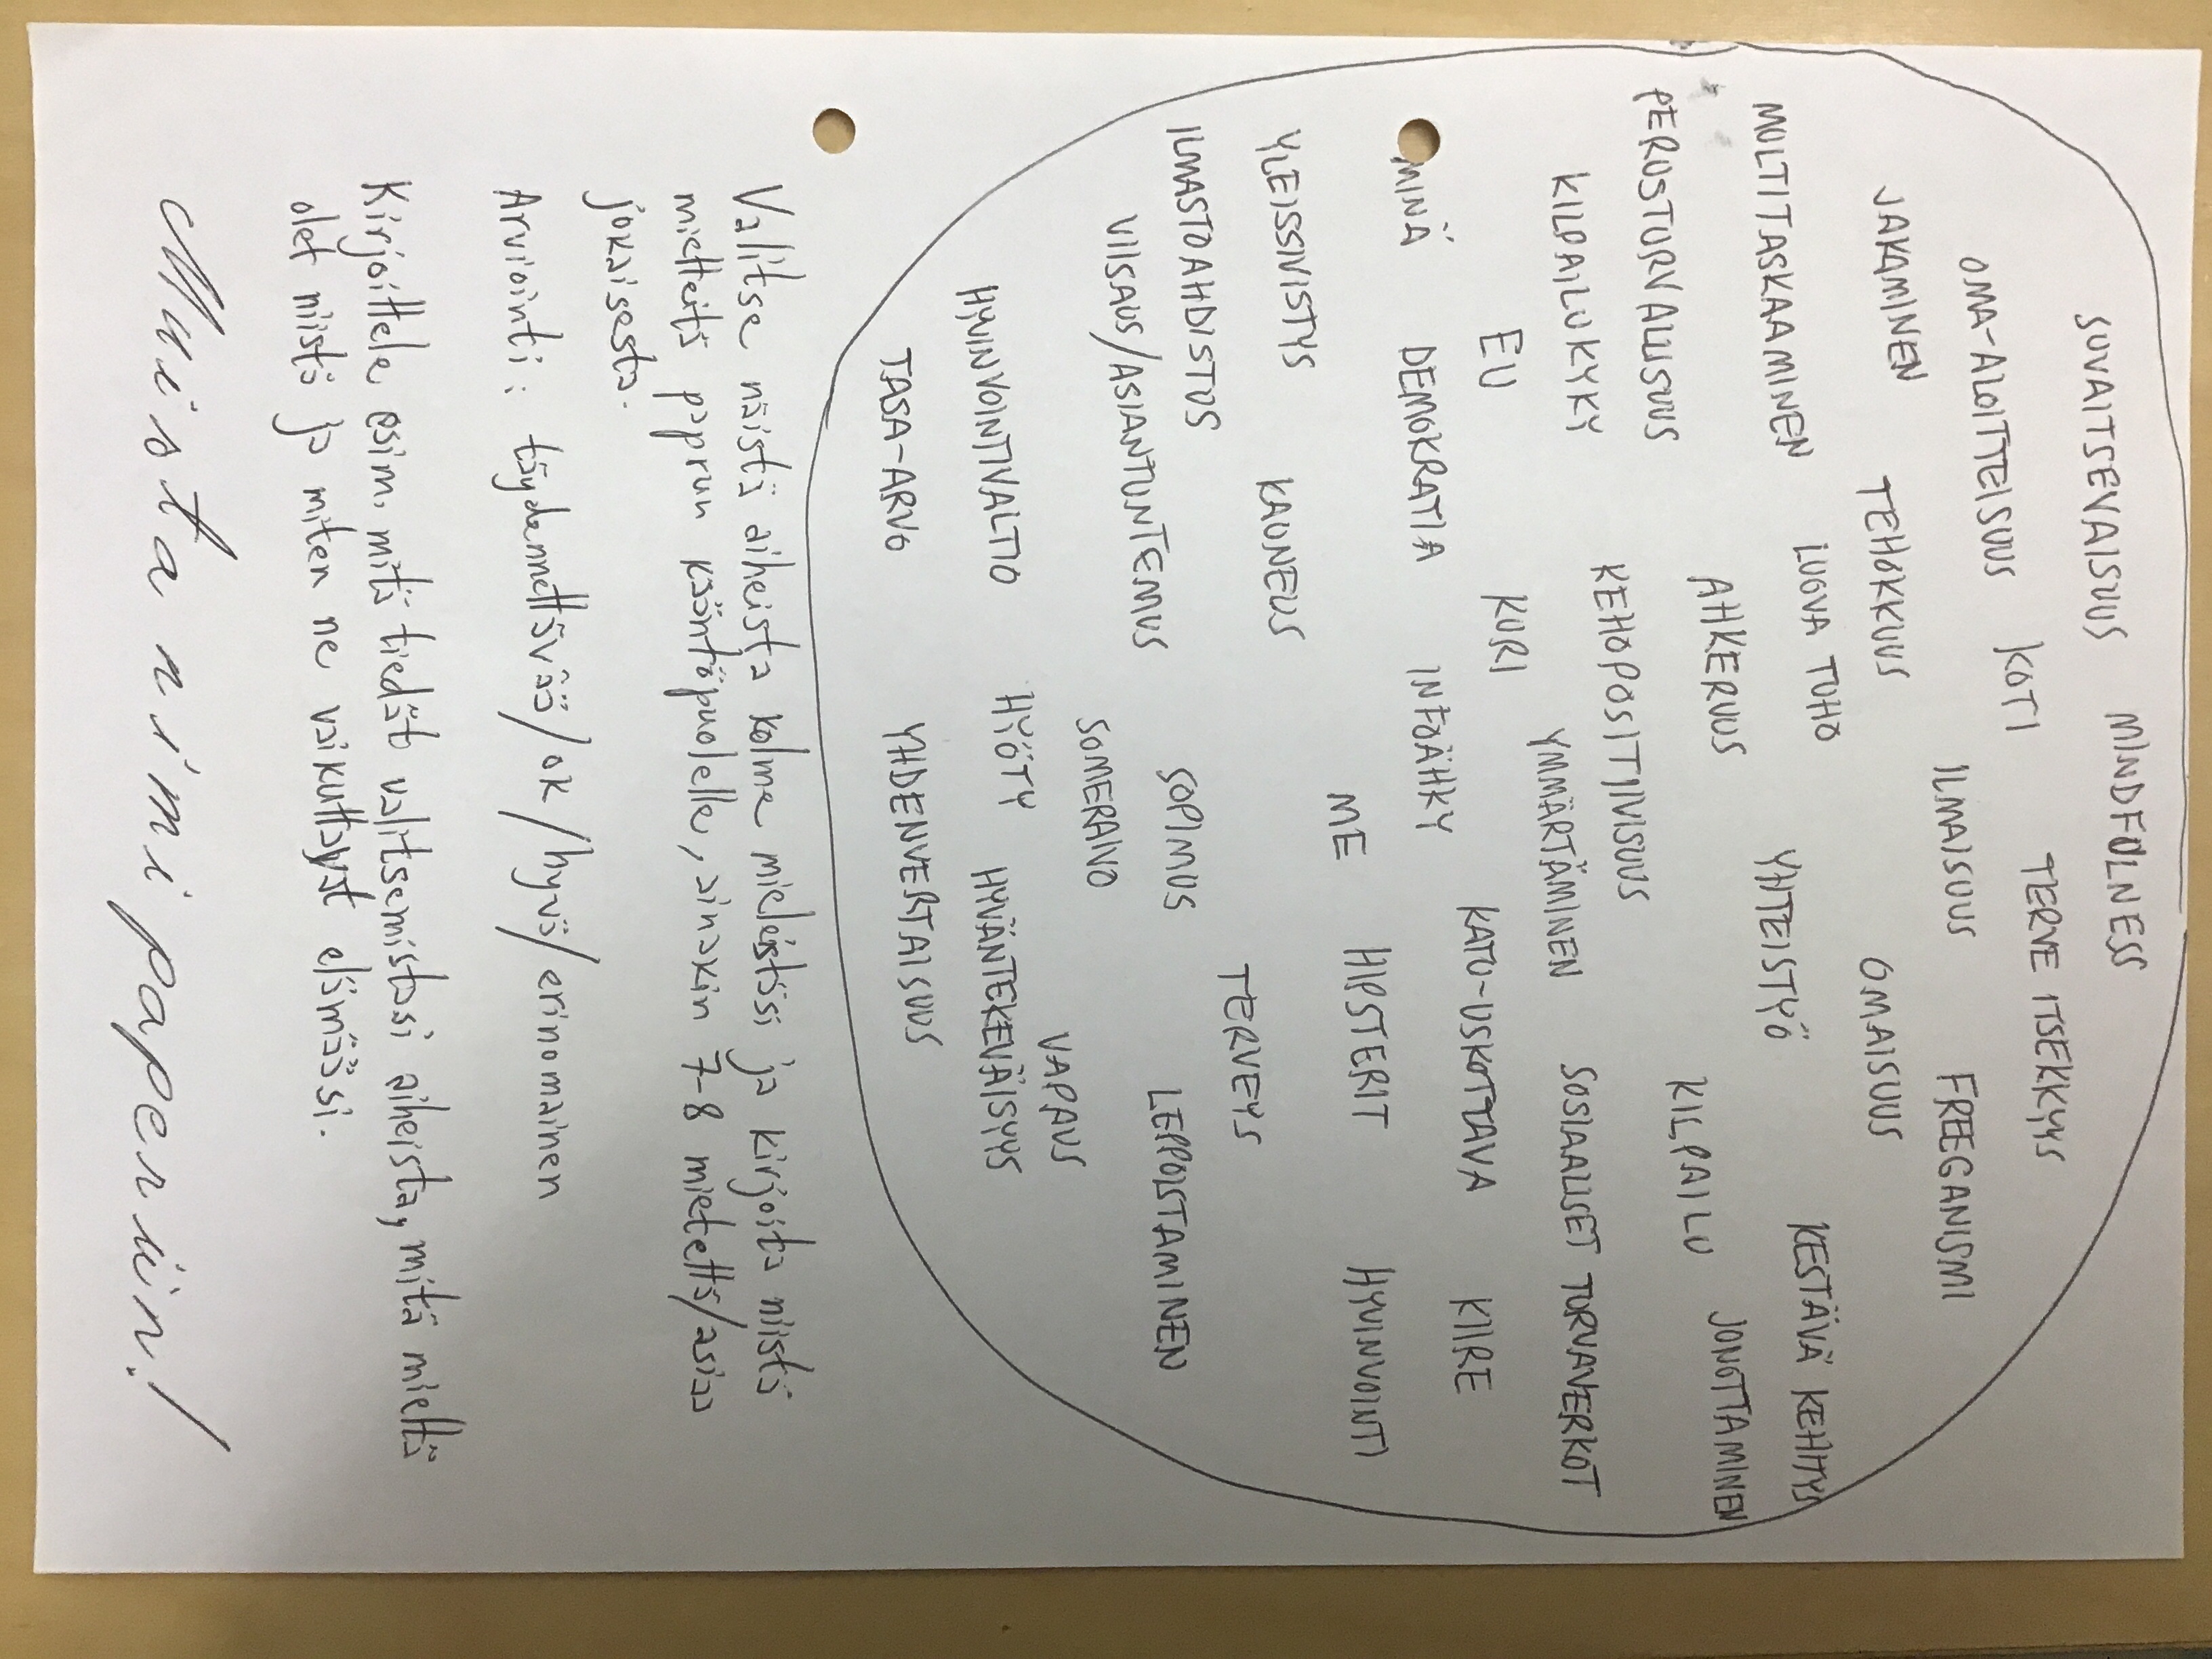 SUVAITSEVAISUUS MINDFULNESS
OMA-ALOITTEISUUS KOTI TERVE ITSEKKYYS
JAKAMINEN TEHOKKUUS ILMAISUUS FREEGANISMI
MULTITASKAAMINEN LUOVA TUHO YHTEISTYÖ OMAISUUS KESTÄVÄ KEHITYS
PERUSTURVALLISUUS AHKERUUS KILPAILU JONOTTAMINEN
KILPAILUKYKY KEHOPOSITIIVISUUS
YMMÄRTÄMINEN SOSIAALISET TURVAVERKOT
EU KURI KATU-USKOTTAVA KIIRE
MINÄ DEMOKRATIA INFOÄHKY
ME HIPSTERIT HYVINVOINTI
YLEISSIVISTYS KAUNEUS TERVEYS
ILMASTOAHDISTUS SOPIMUS LEPPOISTAMINEN
VIISAUS/ASIANTUNTEMUS SOMERAIVO
VAPAUS
HYVINVOINTIVALTIO HYÖTY HYVÄNTEKEVÄISYYS
TASA-ARVO YHDENVERTAISUUS
Valitse näistä aiheista kolme mieleistäsi ja kirjoita niistä
mietteitä paprun kääntöpuolelle, ainakin 7-8 mietettä/asiaa
jokaisesta.
Arviointi: täydennettävää/ok/hyvä/erinomainen
Kirjoittele esim. mitä tiedät valitsemistasi aiheista, mitä mieltä
olet niistä ja miten ne vaikuttavat elämääsi.
Muista nimi paperiin!